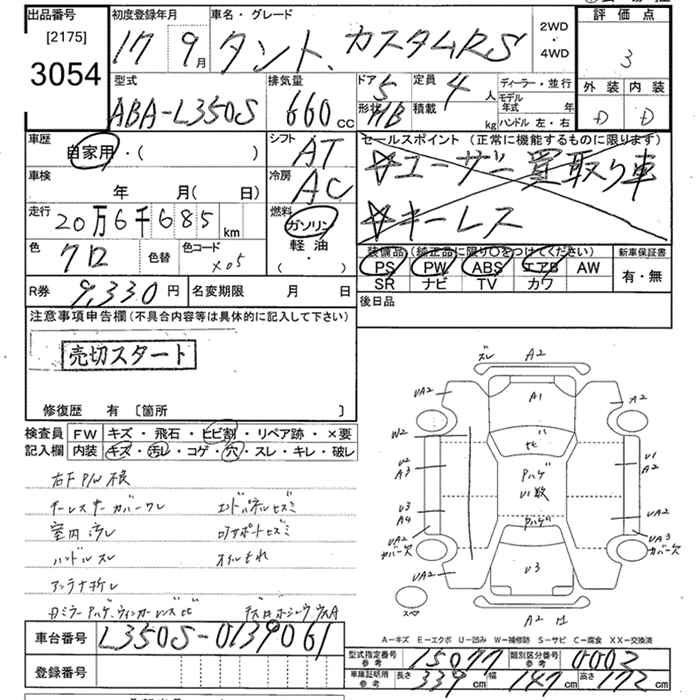 出品番号 初度登録年月 車名・グレード 2WD ・4WD 評価点
[2175]
3054 17 9月 タント、カスタムRS 3
型式 排気量 ドア 5 定員 4人 ディーラー・並行 外装 内装
ABA-L350S 660cc 形状 HB 積載 kg モデル年式 年 D D
ハンドル 左・右
車歴 シフト セールスポイント(正常に機能するものに限ります)
自家用・( ) AT ☆ユーザー買取り車
車検 冷房
年 月(日) AC ☆キーレス
走行 燃料
20万6千685km ガソリン
色 クロ 色替 色コード X05 軽油
(・) 装備品(純正品に限り○をつけてください) 新車保証書
PS PW ABS エアB AW 有・無
SR ナビ TV カワ
R券 9,330円 名変期限 月 日 後日品
注意事項申告欄(不具合内容等は具体的に記入して下さい)
売切スタート
修復歴 有 〔箇所 〕
検査員 FW キズ・飛石・ヒビ割・リペア跡・×要
記入欄 内装 キズ・汚レ・コゲ・穴・スレ・キレ・破レ
右F P/W不良
室内汚レ
ハンドルスレ
アンテナ折レ
ズレ A2
VA2 A1 A2
W2 ヒビ
V2 A3 Pハゲ V1 A2
V1数
V3 A4 Pハゲ VA2
VA2 カバー欠 VA3 カバー欠
VA2 V3
スペア
A2
A-キズ E-エクボ U-凹み W-補修跡 S-サビ C-腐食 XX-交換済
車台番号 L350S-0139061
型式指定番号 参考 15077 類別区分番号 参考 0003
登録番号
車庫証明用 参考 長さ 339cm 幅 147cm 高さ 172cm